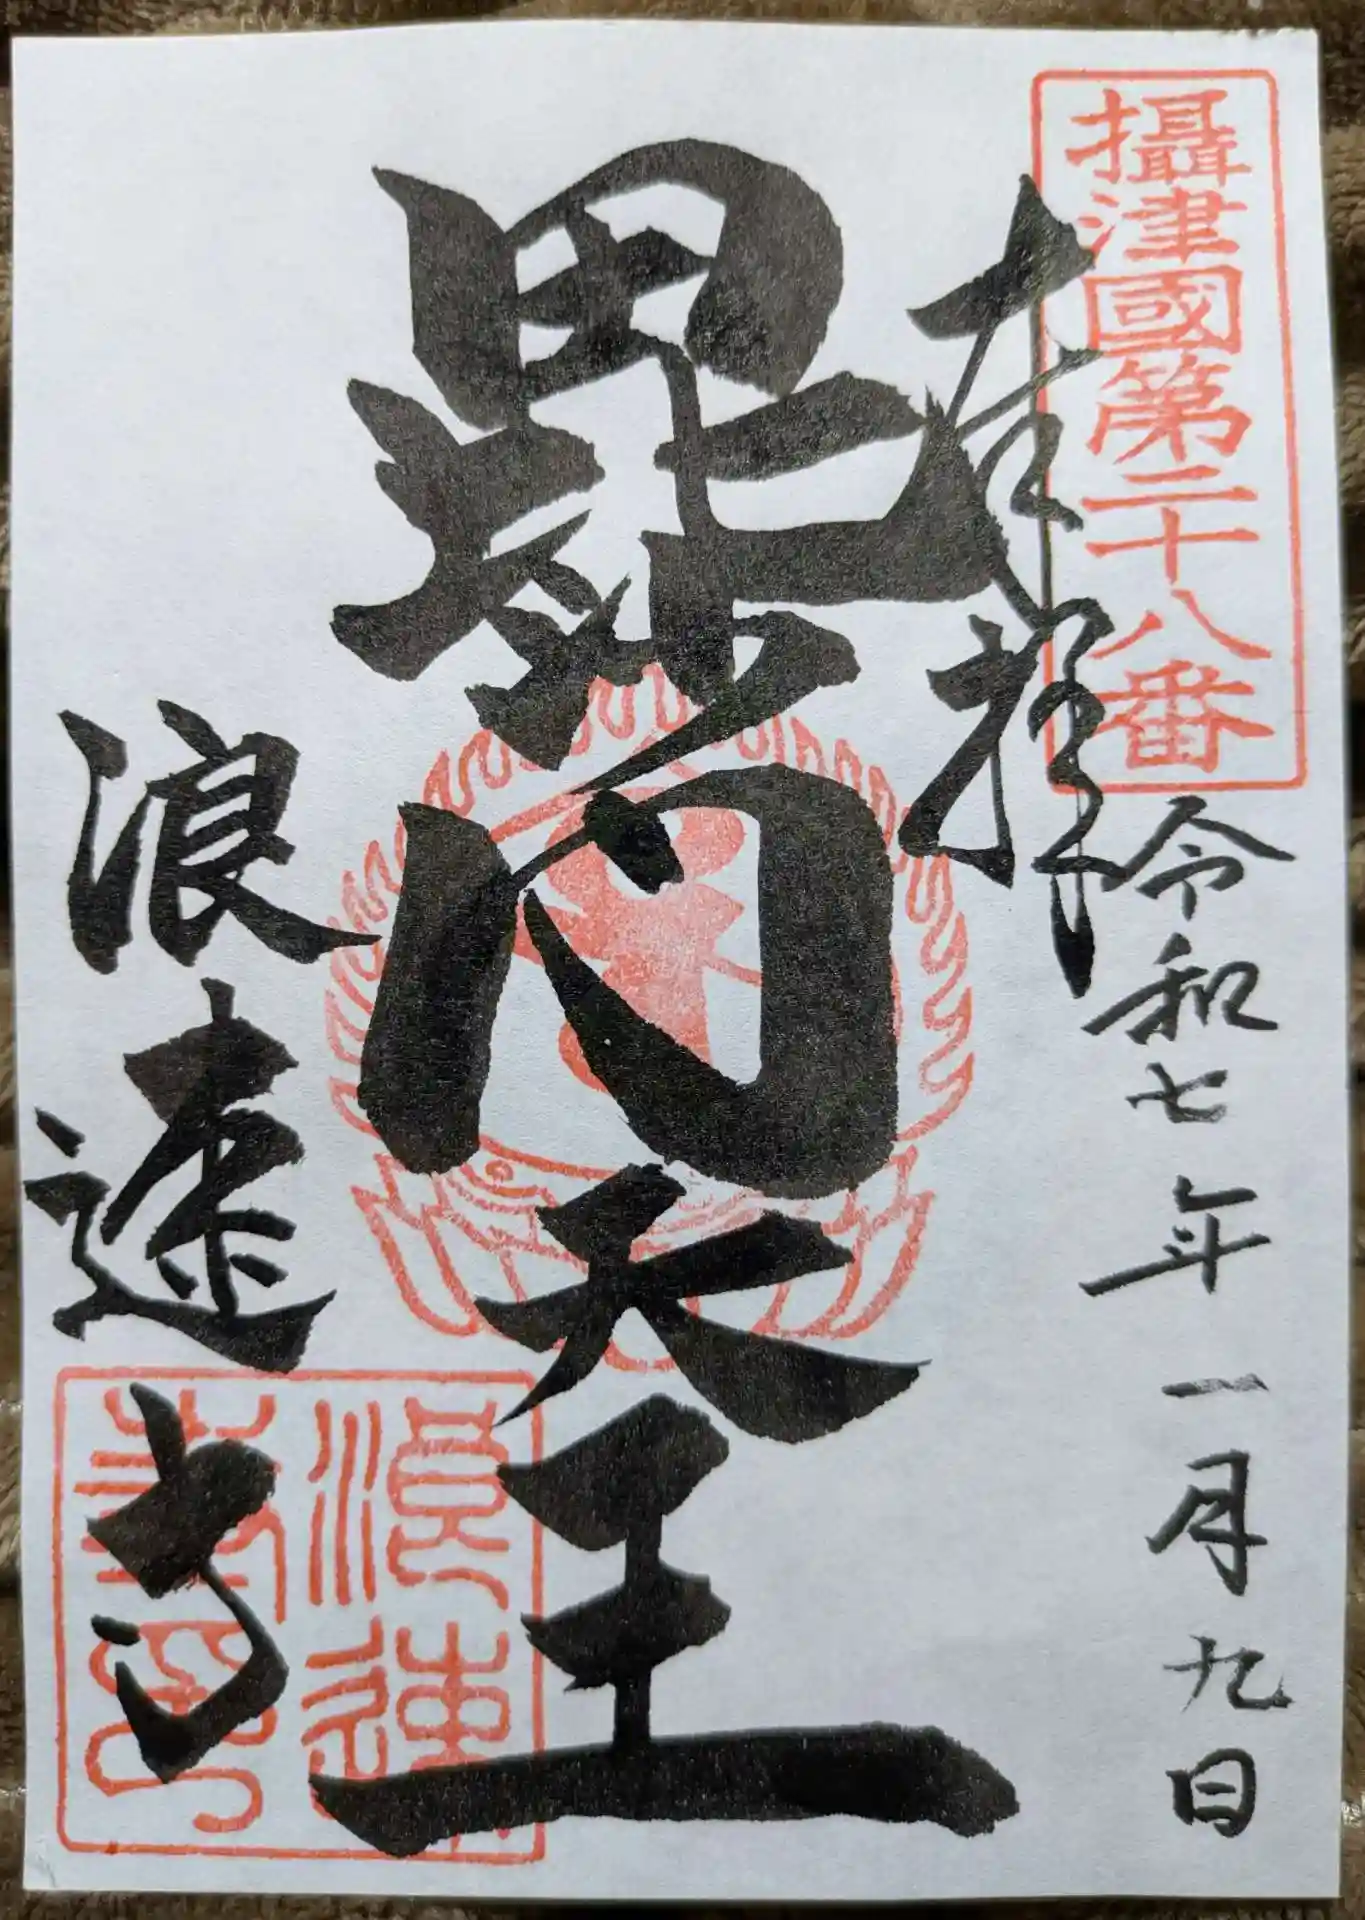 攝津國第二十八番
奉拝
令和七年一月九日
毘沙門天王
浪速寺